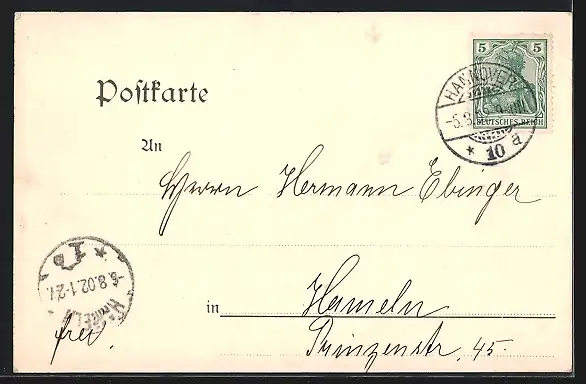 5 5
DEUTSCHES REICH
HANNOVER
-5.8.
* 10 a
Postkarte
An
Herrn Hermann Ebinger
in Hameln
Prinzenstr. 45.
HAMELN
-6.8.02.1-2
* 1 b
frei.